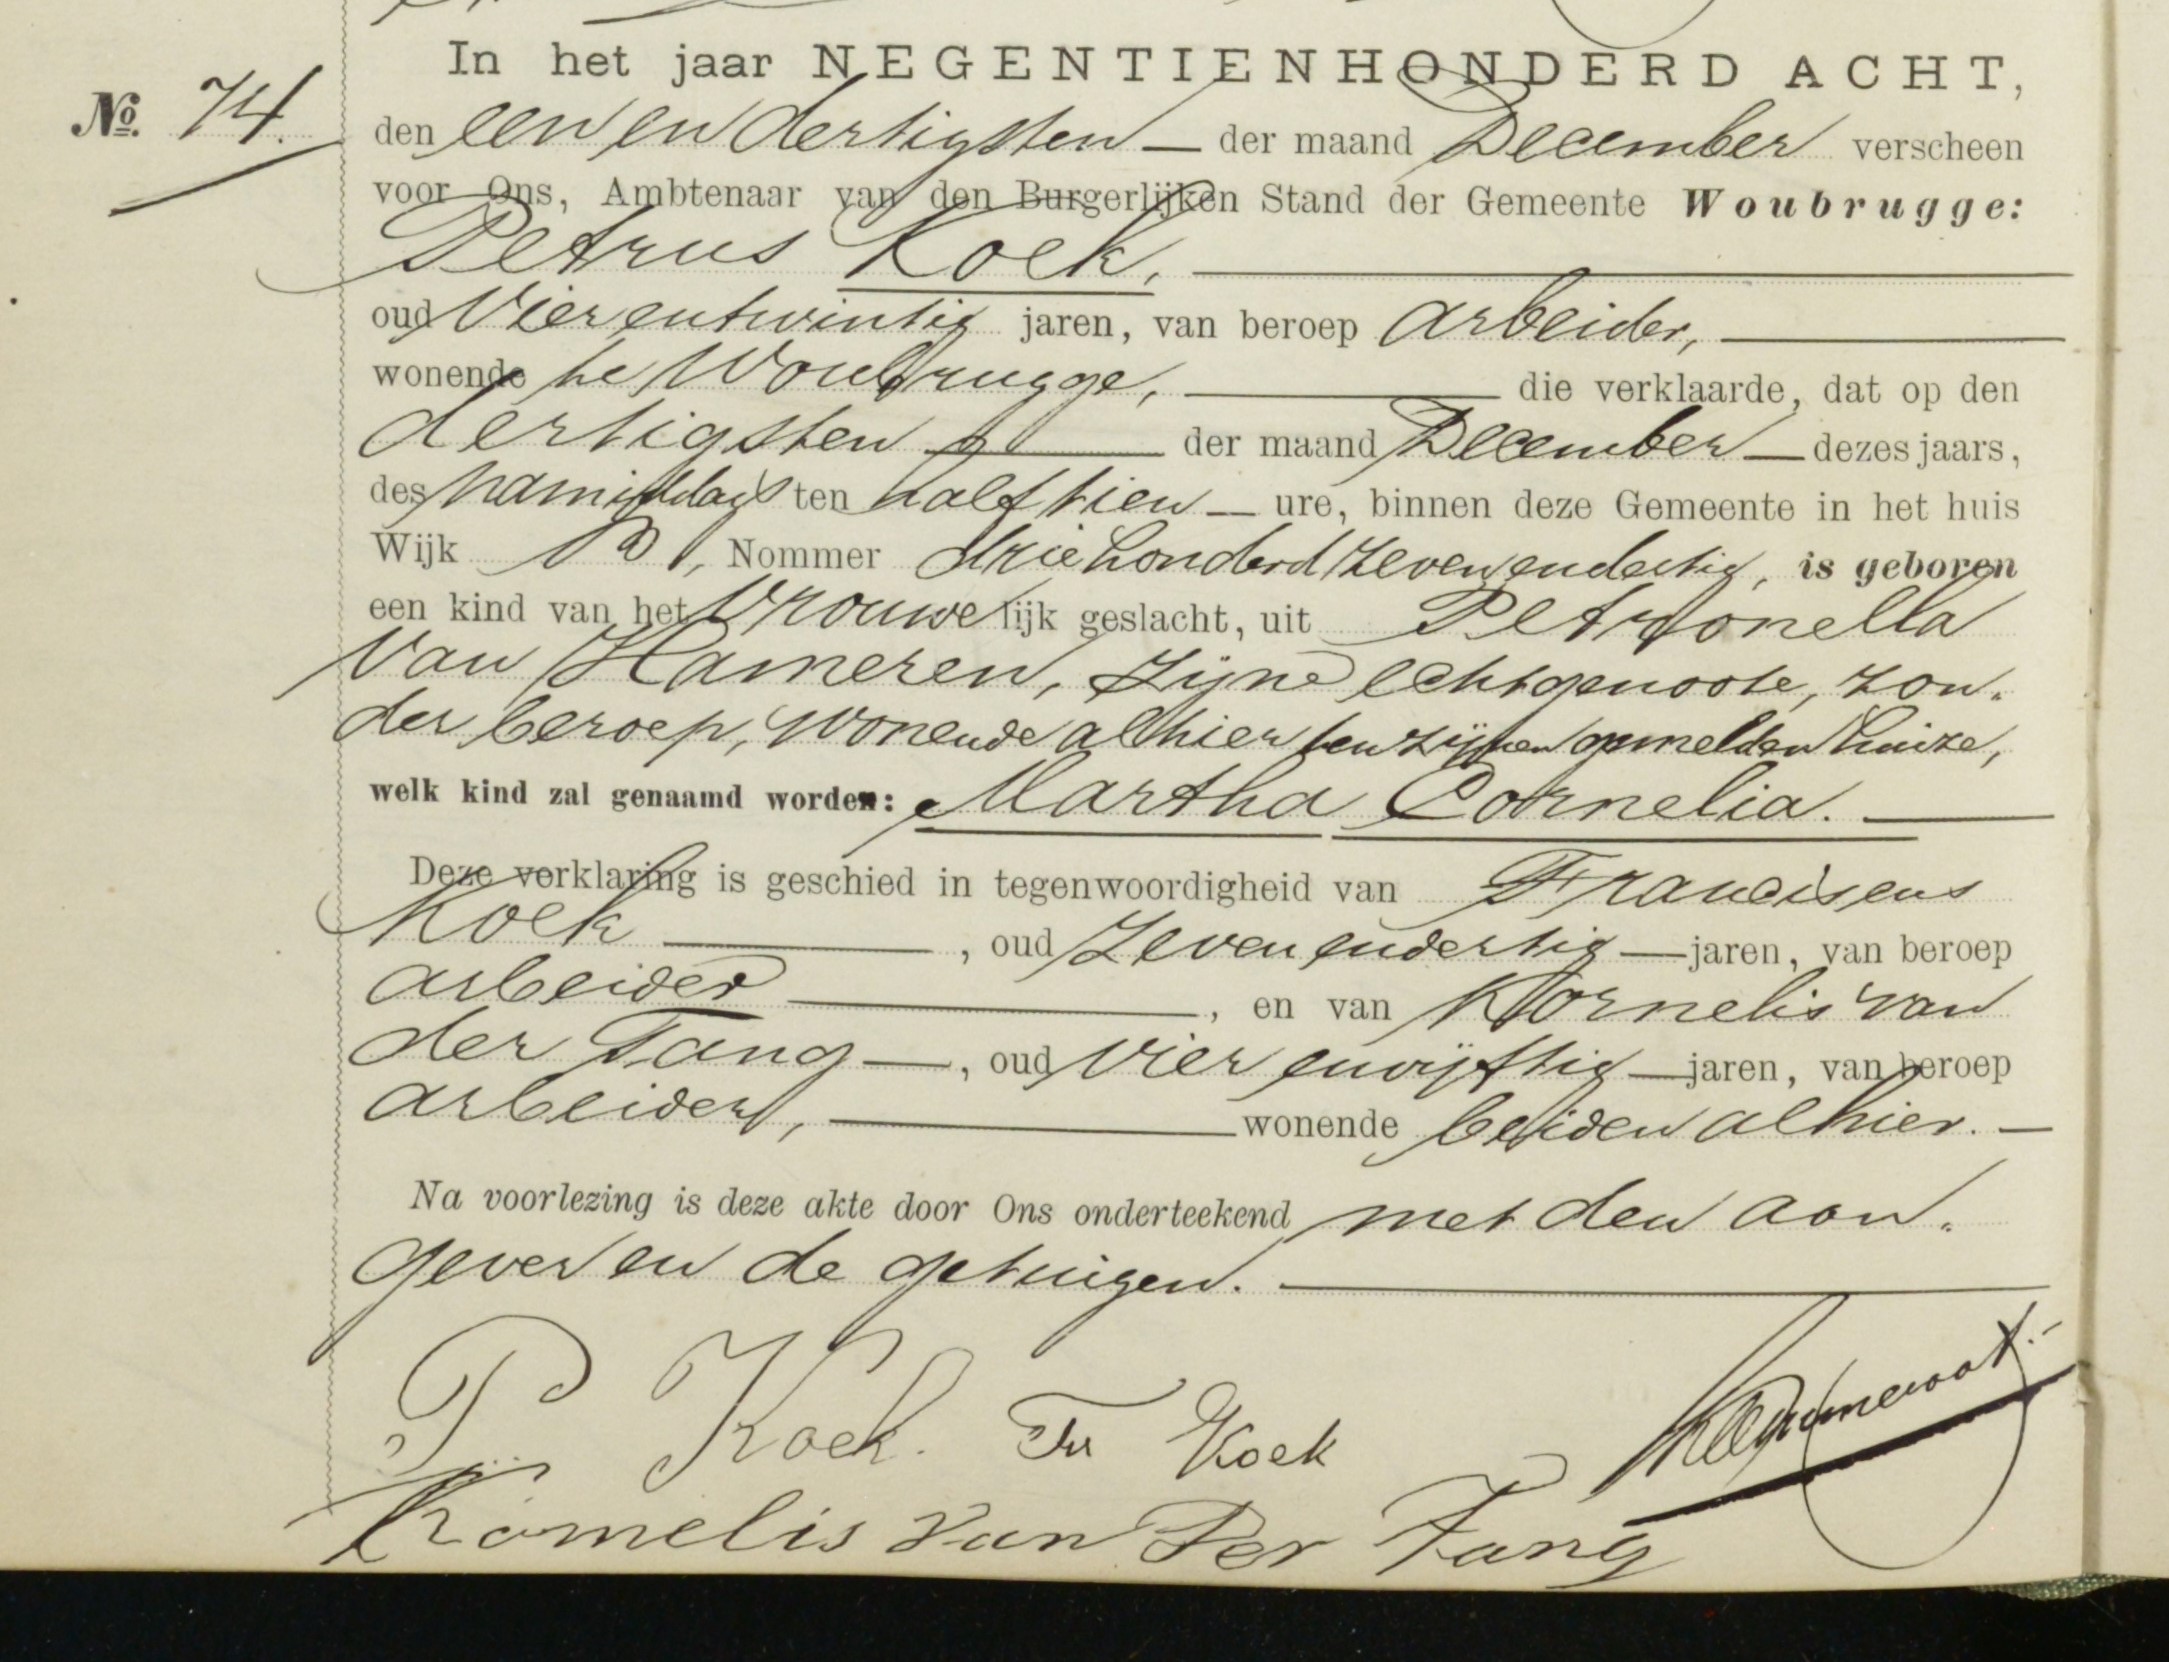 In het jaar NEGENTIENHONDERD ACHT,
No. 74. den een en dertigsten — der maand December verscheen
voor Ons, Ambtenaar van den Burgerlijken Stand der Gemeente Woubrugge:
Petrus Koek,
oud Vier entwintig jaren, van beroep arbeider,
wonende te Woubrugge, die verklaarde, dat op den
dertigsten der maand December — dezes jaars,
des namiddags ten half tien — ure, binnen deze Gemeente in het huis
Wijk B, Nommer driehonderd zeven endertig, is geboren
een kind van het Vrouwelijk geslacht, uit Petronella
van Hameren, zijne echtgenoote, zon-
der beroep, wonende alhier ten zijnen gemelden huize,
welk kind zal genaamd worden: Martha Cornelia.
Deze verklaring is geschied in tegenwoordigheid van Franciscus
Koek, oud Zeven endertig — jaren, van beroep
arbeider, en van Kornelis van
der Tang —, oud vier envijftig — jaren, van beroep
arbeider, wonende beiden alhier. —
Na voorlezing is deze akte door Ons onderteekend met den aan-
gever en de getuigen.
P Koek. Fr Koek
Kornelis van Der Tang